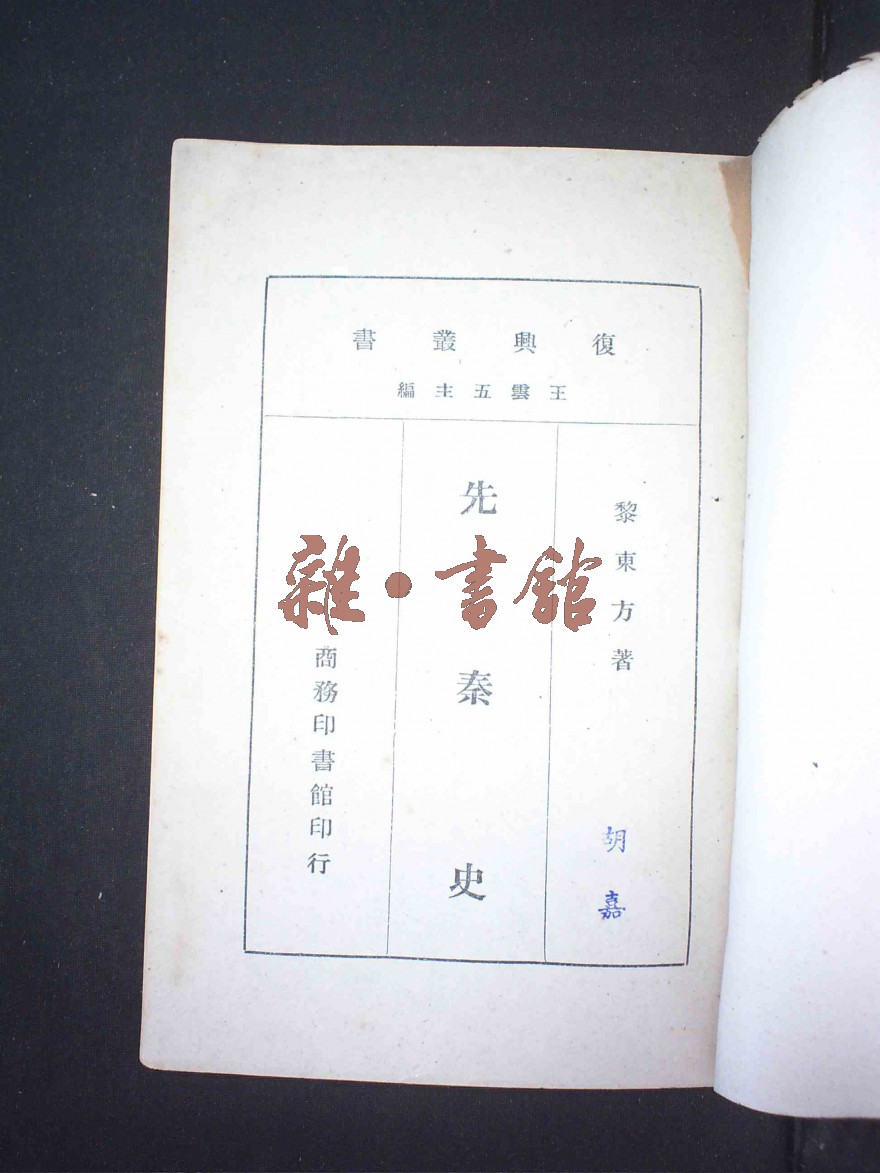 復興叢書
王雲五主編
黎東方著
胡嘉
先秦史
商務印書館印行
雜·書館